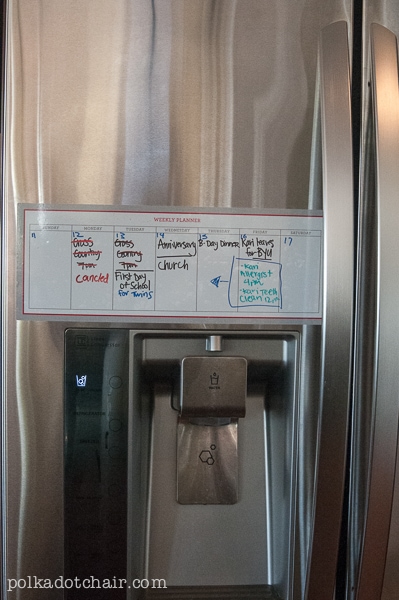 WEEKLY PLANNER
SUNDAY MONDAY TUESDAY WEDNESDAY THURSDAY FRIDAY SATURDAY
11 12 13 14 15 16 17
Cross
Country
7am
Canceled
Cross
Country
7am
First Day
of School
for Twins
Anniversary
Church
B-Day Dinner
Kari leaves
for BYU
-Kari
Allergist
4pm
-Kari Teeth
Clean 12pm
WATER
polkadotchair.com